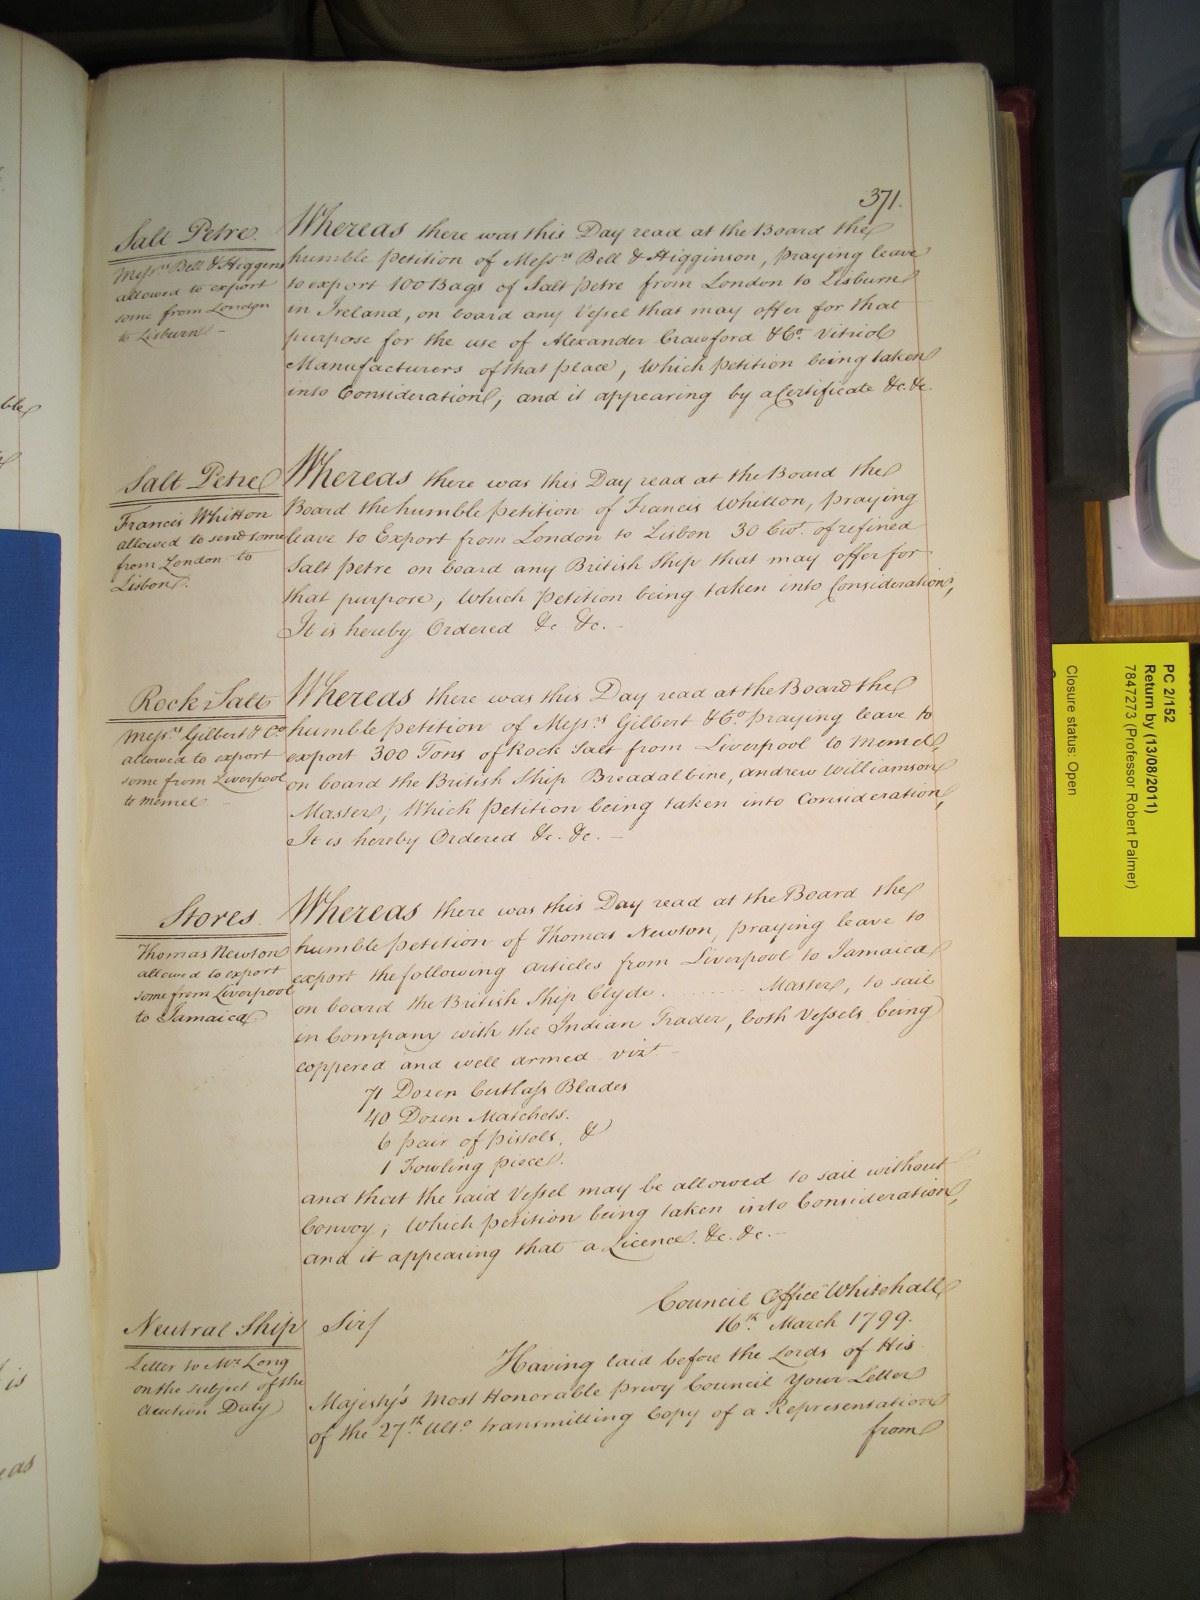 371.
Salt Petre.
Mess.rs Bell & Higgens
allowed to export
some from London
to Lisburn. -
Whereas there was this Day read at the Board the
humble petition of Mess.rs Bell & Higginson, praying leave
to export 100 Bags of Salt petre from London to Lisburn
in Ireland, on board any Vessel that may offer for that
purpose for the use of Alexander Crawford & Co. Vitriol
Manufacturers of that place, Which petition being taken
into Consideration, and it appearing by a Certificate &c. &c.
Salt Petre
Francis Whitton
allowed to send some
from London to
Lisbon.
Whereas there was this Day read at the Board the
Board the humble petition of Francis Whitton, praying
leave to Export from London to Lisbon 30 Cwt. of refined
Salt petre on board any British Ship that may offer for
that purpose, Which petition being taken into Consideration,
It is hereby Ordered &c &c. -
Rock Salt
Mess.rs Gilbert & Co
allowed to export
some from Liverpool
to Memel -
Whereas there was this Day read at the Board the
humble petition of Mess.rs Gilbert & Co praying leave to
export 300 Tons of Rock Salt from Liverpool to Memel,
on board the British Ship Breadalbine, Andrew Williamson
Master; Which petition being taken into Consideration,
It is hereby Ordered &c. &c. -
Stores.
Thomas Newton
allowed to export
some from Liverpool
to Jamaica.
Whereas there was this Day read at the Board the
humble petition of Thomas Newson, praying leave to
export the following articles from Liverpool to Jamaica
on board the British Ship Clyde. ........ Master, to sail
in Company with the Indian Trader, both Vessels being
coppered and well armed vizt
71 Dozen Cutlass Blades
40 Dozen Matchets.
6 pair of pistols, &
1 Fowling piece.
and that the said Vessel may be allowed to sail without
Convoy; Which petition being taken into Consideration,
and it appearing that a Licence. &c. &c. -
Council Office Whitehall
16th. March 1799.
Neutral Ship
Letter to Mr Long
on the subject of the
Auction Duty
Sir/
Having laid before the Lords of His
Majesty's Most Honorable privy Council Your Letter
of the 27th. Ulto. transmitting Copy of a Representation
from
ble
is
eas
PC 2/152
Return by (13/08/2011)
7847273 (Professor Robert Palmer)
Closure status: Open